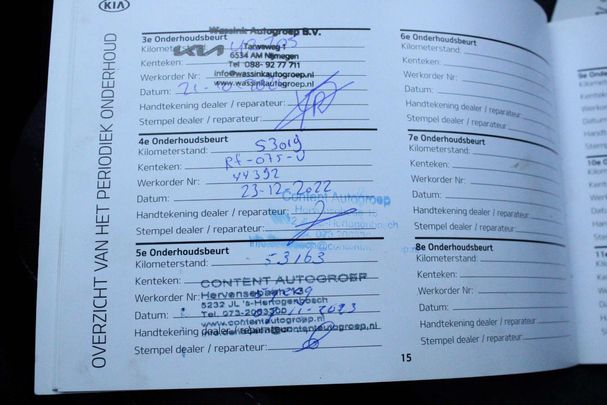 KIA
OVERZICHT VAN HET PERIODIEK ONDERHOUD
Wassink Autogroep B.V.
3e Onderhoudsbeurt
Kilometerstand:
KIA
Tarweweg 1
6534 AM Nijmegen
Kenteken:
Tel 088- 92 77 711
Werkorder Nr:
info@wassinkautogroep.nl
www.wassinkautogroep.nl
Datum: 21-10
Handtekening dealer / reparateur:
Stempel dealer / reparateur:
4e Onderhoudsbeurt
Kilometerstand: 53019
Kenteken: Rf-075-
Werkorder Nr: 44392
Datum: 23-12-2022
Content Autogroep
Handtekening dealer / reparateur:
Stempel dealer / reparateur:
5e Onderhoudsbeurt
Kilometerstand: 53163
Kenteken:
CONTENT AUTOGROEP
Werkorder Nr:
5232 JL 's-Hertogenbosch
Datum: 11-2023
www.contentautogroep.nl
Handtekening dealer / reparateur:
Stempel dealer / reparateur:
6e Onderhoudsbeurt
Kilometerstand:
Kenteken:
Werkorder Nr:
Datum:
Handtekening dealer / reparateur:
Stempel dealer / reparateur:
7e Onderhoudsbeurt
Kilometerstand:
Kenteken:
Werkorder Nr:
Datum:
Handtekening dealer / reparateur:
Stempel dealer / reparateur:
8e Onderhoudsbeurt
Kilometerstand:
Kenteken:
Werkorder Nr:
Datum:
Handtekening dealer / reparateur:
Stempel dealer / reparateur:
15